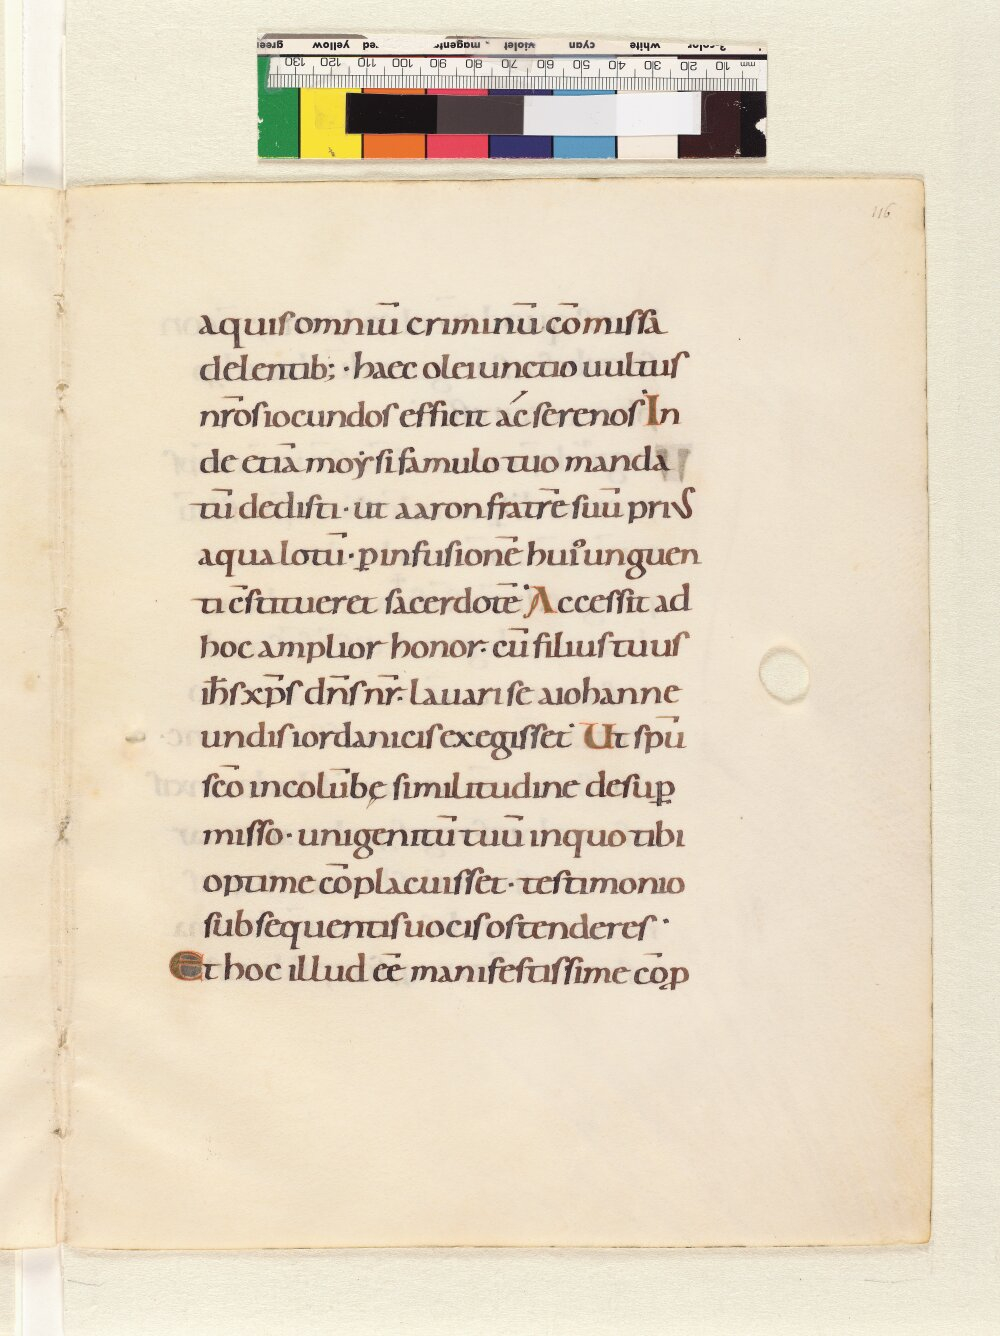 116
aquiſ omniū criminū cōmiſſa
delentib; · haec olei unctio uultuſ
nr̄oſ iocundoſ efficit ac ſerenoſ · In
de etiā moẏſi famulo tuo manda
tū dediſti · ut aaron fratrē ſuū priuſ
aqua lotū · ꝑ infuſionē huiꝰ unguen
ti cſtitueret ſacerdotē · Acceſſit ad
hoc amplior honor · cū filiuſ tuuſ
ih̄ſ xp̄ſ dn̄ſ nr̄ · lauari ſe a iohanne
undiſ iordaniciſ exegiſſet · Ut ſpū
ſcō in colūbę ſimilitudine deſuꝑ
miſſo · unigenitū tuū in quo tibi
optime cōplacuiſſet · teſtimonio
ſubſequentiſ uociſ oſtendereſ ·
Et hoc illud eē manifeſtiſſime cōꝑ